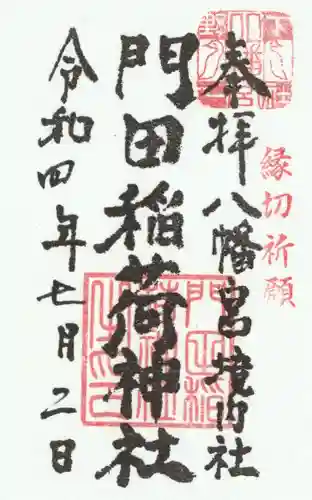 奉拝八幡宮境内社
縁切祈願
門田稲荷神社
令和四年七月二日